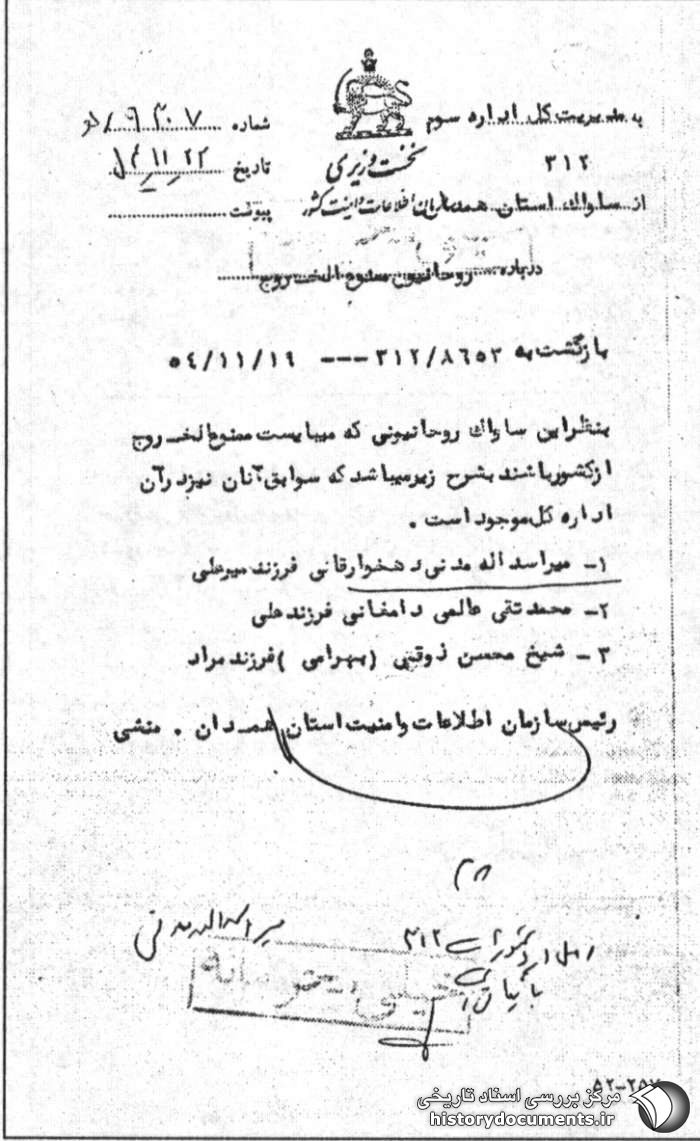 به مدیریت کل اداره سوم
۳۱۲
نخست وزیری
از ساواك استان همدان سازمان اطلاعات و امنیت کشور
شماره
تاریخ
پیوست
درباره روحانیون ممنوع الخروج
بازگشت به ۳۱۲/۸۶۵۳ --- ۵٤/۱۱/۱۹
بنظر این ساواك روحانیونی که میبایست ممنوع الخروج
از کشور باشند بشرح زیر میباشد که سوابق آنان نیز در آن
اداره کل موجود است .
۱- میراسداله مدنی دهخوارقانی فرزند میرعلی
۲- محمدتقی عالمی دامغانی فرزند علی
۳ - شیخ محسن ذوقی (بهرامی ) فرزند مراد
رئیس سازمان اطلاعات وامنیت استان همدان . منشی
میر اسداله مدنی
خیلی محرمانه
۵۲-۲۵۷
مرکز بررسی اسناد تاریخی
historydocuments.ir